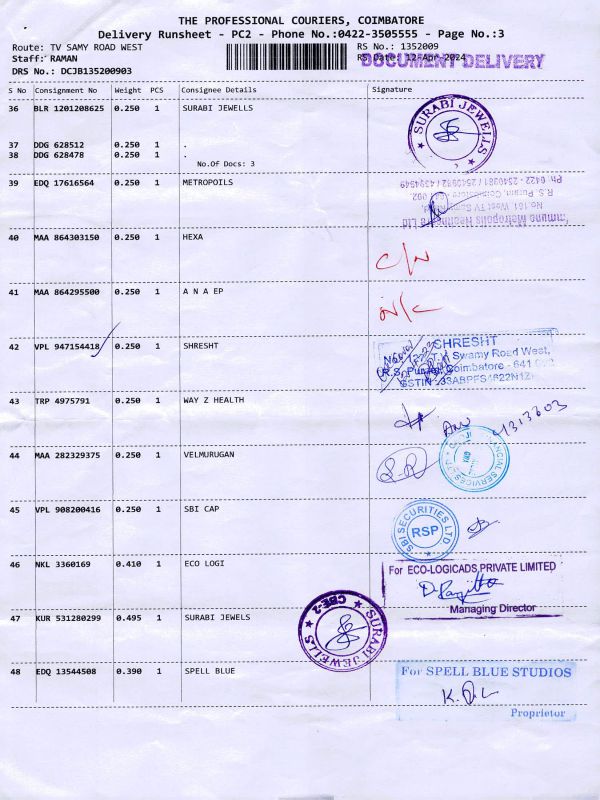 THE PROFESSIONAL COURIERS, COIMBATORE
Delivery Runsheet - PC2 - Phone No.:0422-3505555 - Page No.:3
Route: TV SAMY ROAD WEST
RS No.: 1352009
Staff: RAMAN
RS Date: 12-Apr-2024
DOCUMENT DELIVERY
DRS No.: DCJB135200903
S No Consignment No Weight PCS Consignee Details Signature
36 BLR 1201208625 0.250 1 SURABI JEWELLS
SURABI JEWELLS
37 DDG 628512 0.250 1 .
38 DDG 628478 0.250 1 .
No.Of Docs: 3
39 EDQ 17616564 0.250 1 METROPOILS
No.161 West TV Samy Road,
R.S. Puram, Coimbatore - 641 002.
40 MAA 864303150 0.250 1 HEXA
C/N
41 MAA 864295500 0.250 1 A N A EP
N/C
42 VPL 947154418 0.250 1 SHRESHT
SHRESHT
Swamy Road West,
Coimbatore - 641
43 TRP 4975791 0.250 1 WAY Z HEALTH
44 MAA 282329375 0.250 1 VELMURUGAN
S.R
45 VPL 908200416 0.250 1 SBI CAP
SBI SECURITIES LTD
RSP
46 NKL 3360169 0.410 1 ECO LOGI
For ECO-LOGICADS PRIVATE LIMITED
Managing Director
47 KUR 531280299 0.495 1 SURABI JEWELS
SURABI JEWELLS
CBE-2
48 EDQ 13544508 0.390 1 SPELL BLUE
For SPELL BLUE STUDIOS
Proprietor